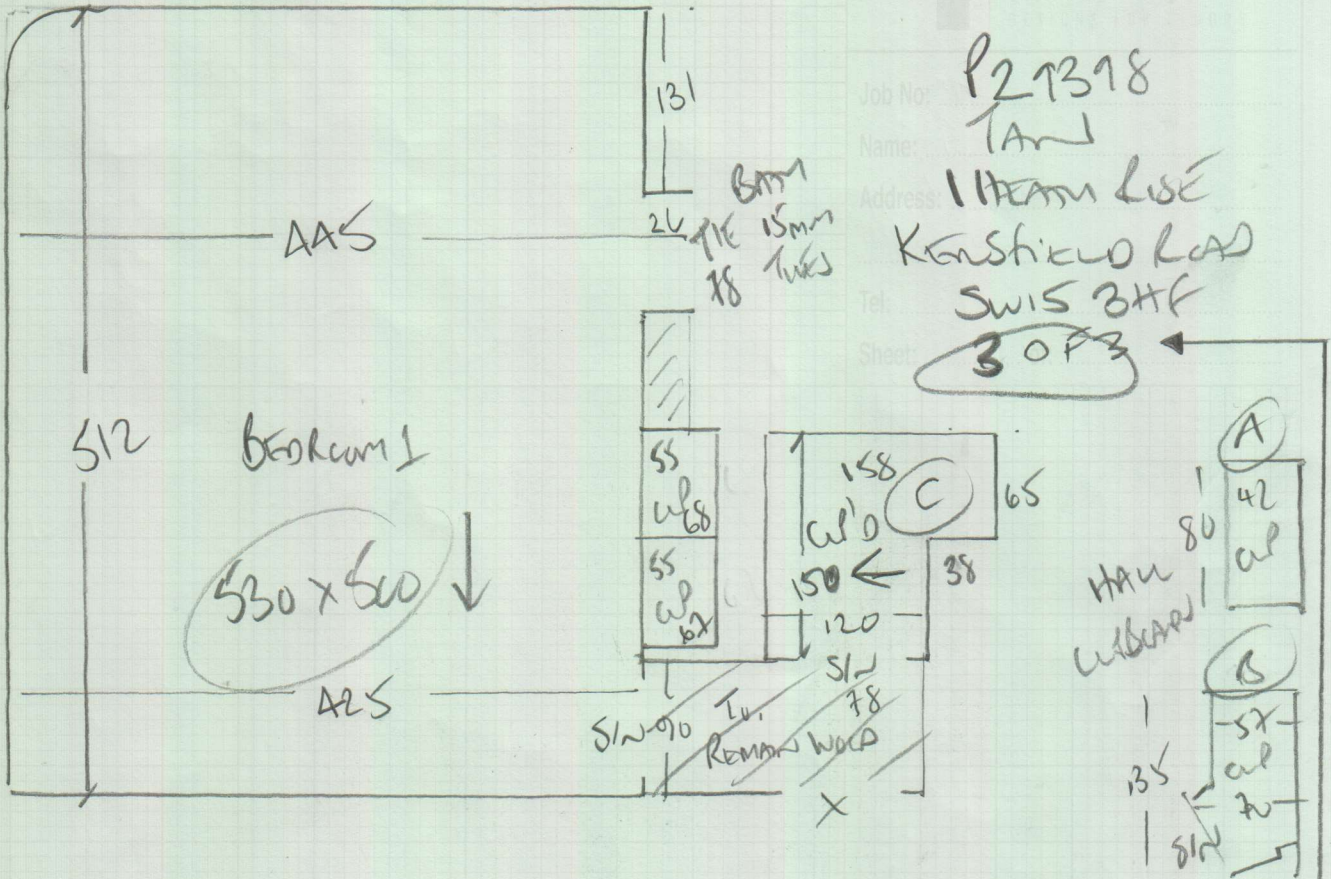 Job No: P21318
Name: TAN
Address: 1 HEATH RISE
KERSFIELD ROAD
Tel: SW15 3HF
Sheet: 3 OF 3
131
BATH
26
TIE 15mm
78 TILES
445
512
BEDROOM 1
530 x 500
425
55
CP
68
55
CP
67
158
CP'D
C
65
150
38
120
S/N
78
S/N 90
TO
REMAIN WOOD
X
A
42
CP
80
HALL
CUPBOARD
B
57
CP
70
135
S/N